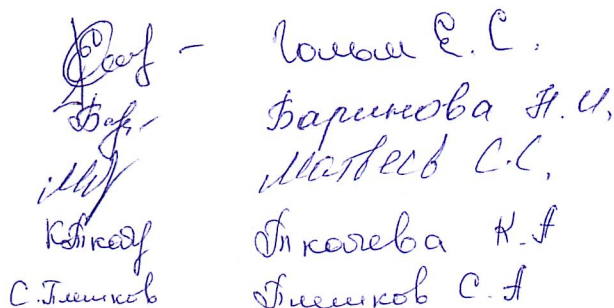 Е. С.
Баринова Н. И.
Матвеев С. С.
К. Ткач Ткачева К. А
С. Плешков Плешков С. А